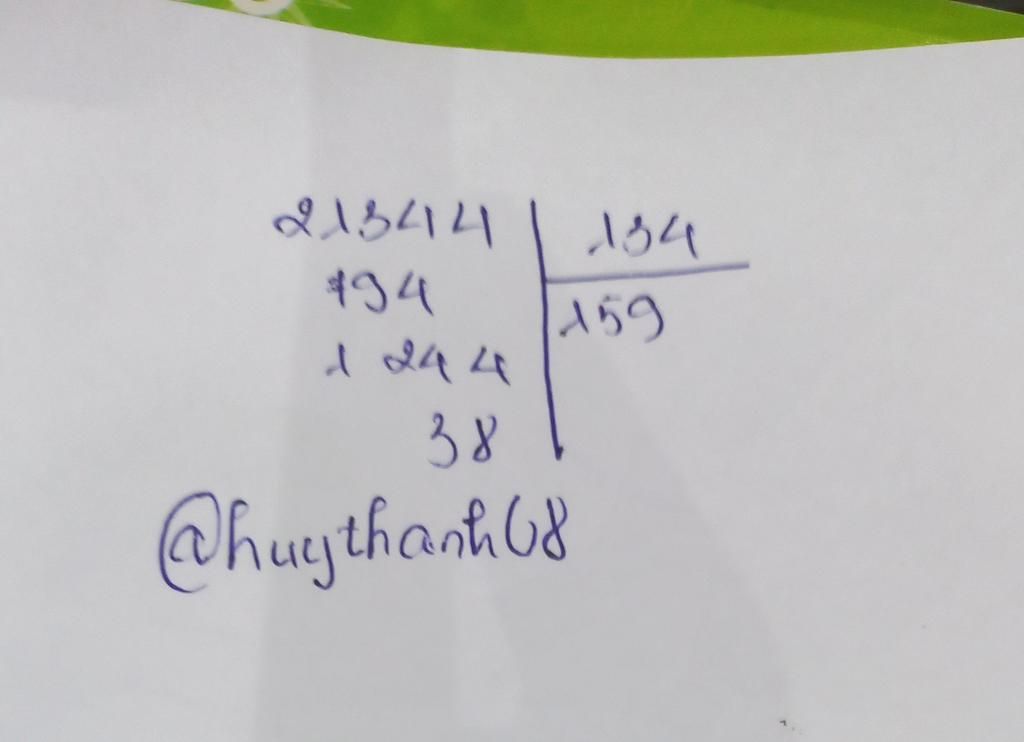 21344 134
794 159
1 244
38
@huythanh08